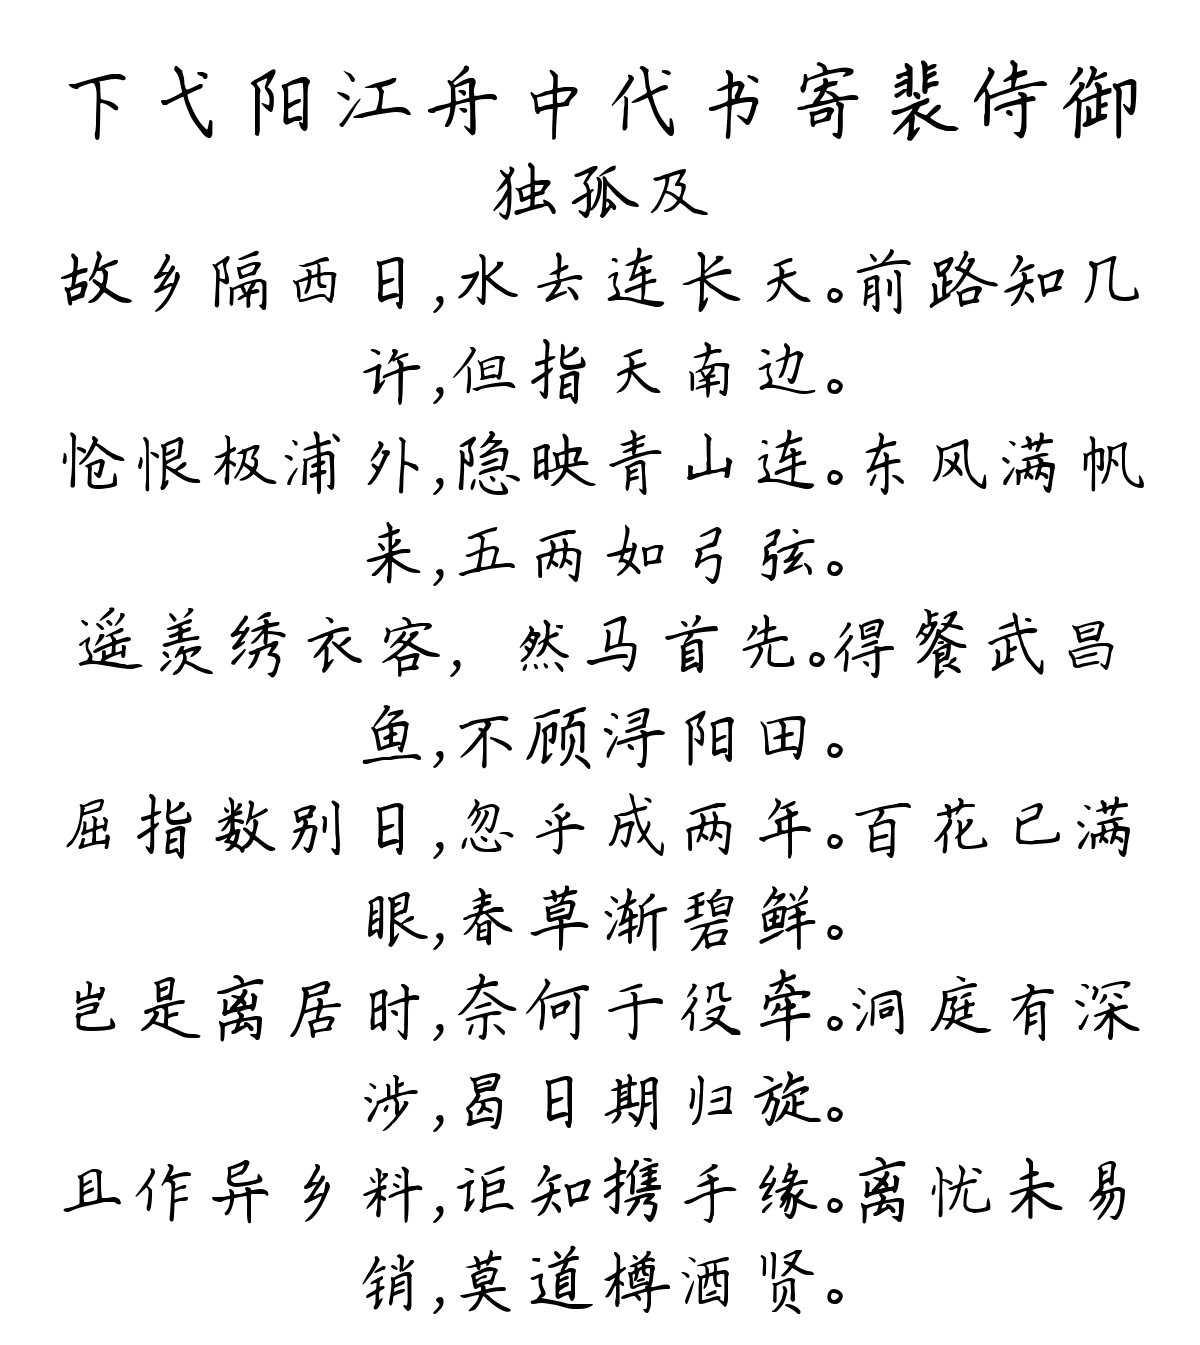 下弋阳江舟中代书寄裴侍御
独孤及
故乡隔西日,水去连长天。前路知几
许,但指天南边。
怆恨极浦外,隐映青山连。东风满帆
来,五两如弓弦。
遥羡绣衣客, 然马首先。得餐武昌
鱼,不顾浔阳田。
屈指数别日,忽乎成两年。百花已满
眼,春草渐碧鲜。
岂是离居时,奈何于役牵。洞庭有深
涉,曷日期归旋。
且作异乡料,讵知携手缘。离忧未易
销,莫道樽酒贤。